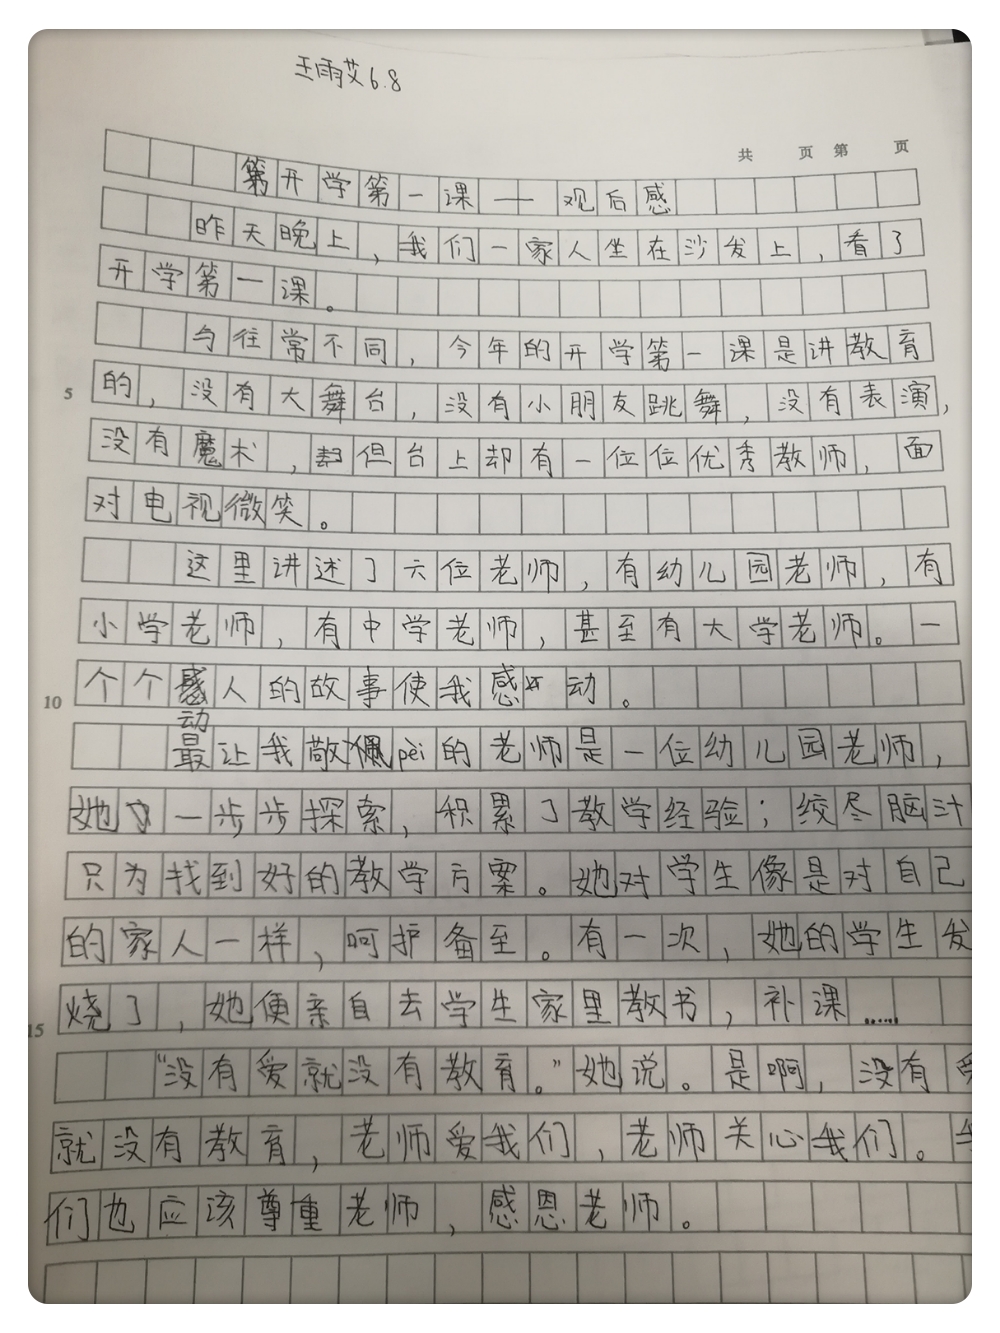 王雨艾6.8
共 页 第 页
第开学第一课——观后感
昨天晚上，我们一家人坐在沙发上，看了
开学第一课。
与往常不同，今年的开学第一课是讲教育
5
的，没有大舞台，没有小朋友跳舞，没有表演，
没有魔术，但台上却有一位位优秀教师，面
对电视微笑。
这里讲述了六位老师，有幼儿园老师，有
小学老师，有中学老师，甚至有大学老师。一
10
个个感动人的故事使我感动。
最让我敬佩pèi的老师是一位幼儿园老师，
她一步步探索，积累了教学经验；绞尽脑汁
只为找到好的教学方案。她对学生像是对自己
的家人一样，呵护备至。有一次，她的学生发
15
烧了，她便亲自去学生家里教书，补课……
“没有爱就没有教育。”她说。是啊，没有爱
就没有教育，老师爱我们，老师关心我们。我
们也应该尊重老师，感恩老师。